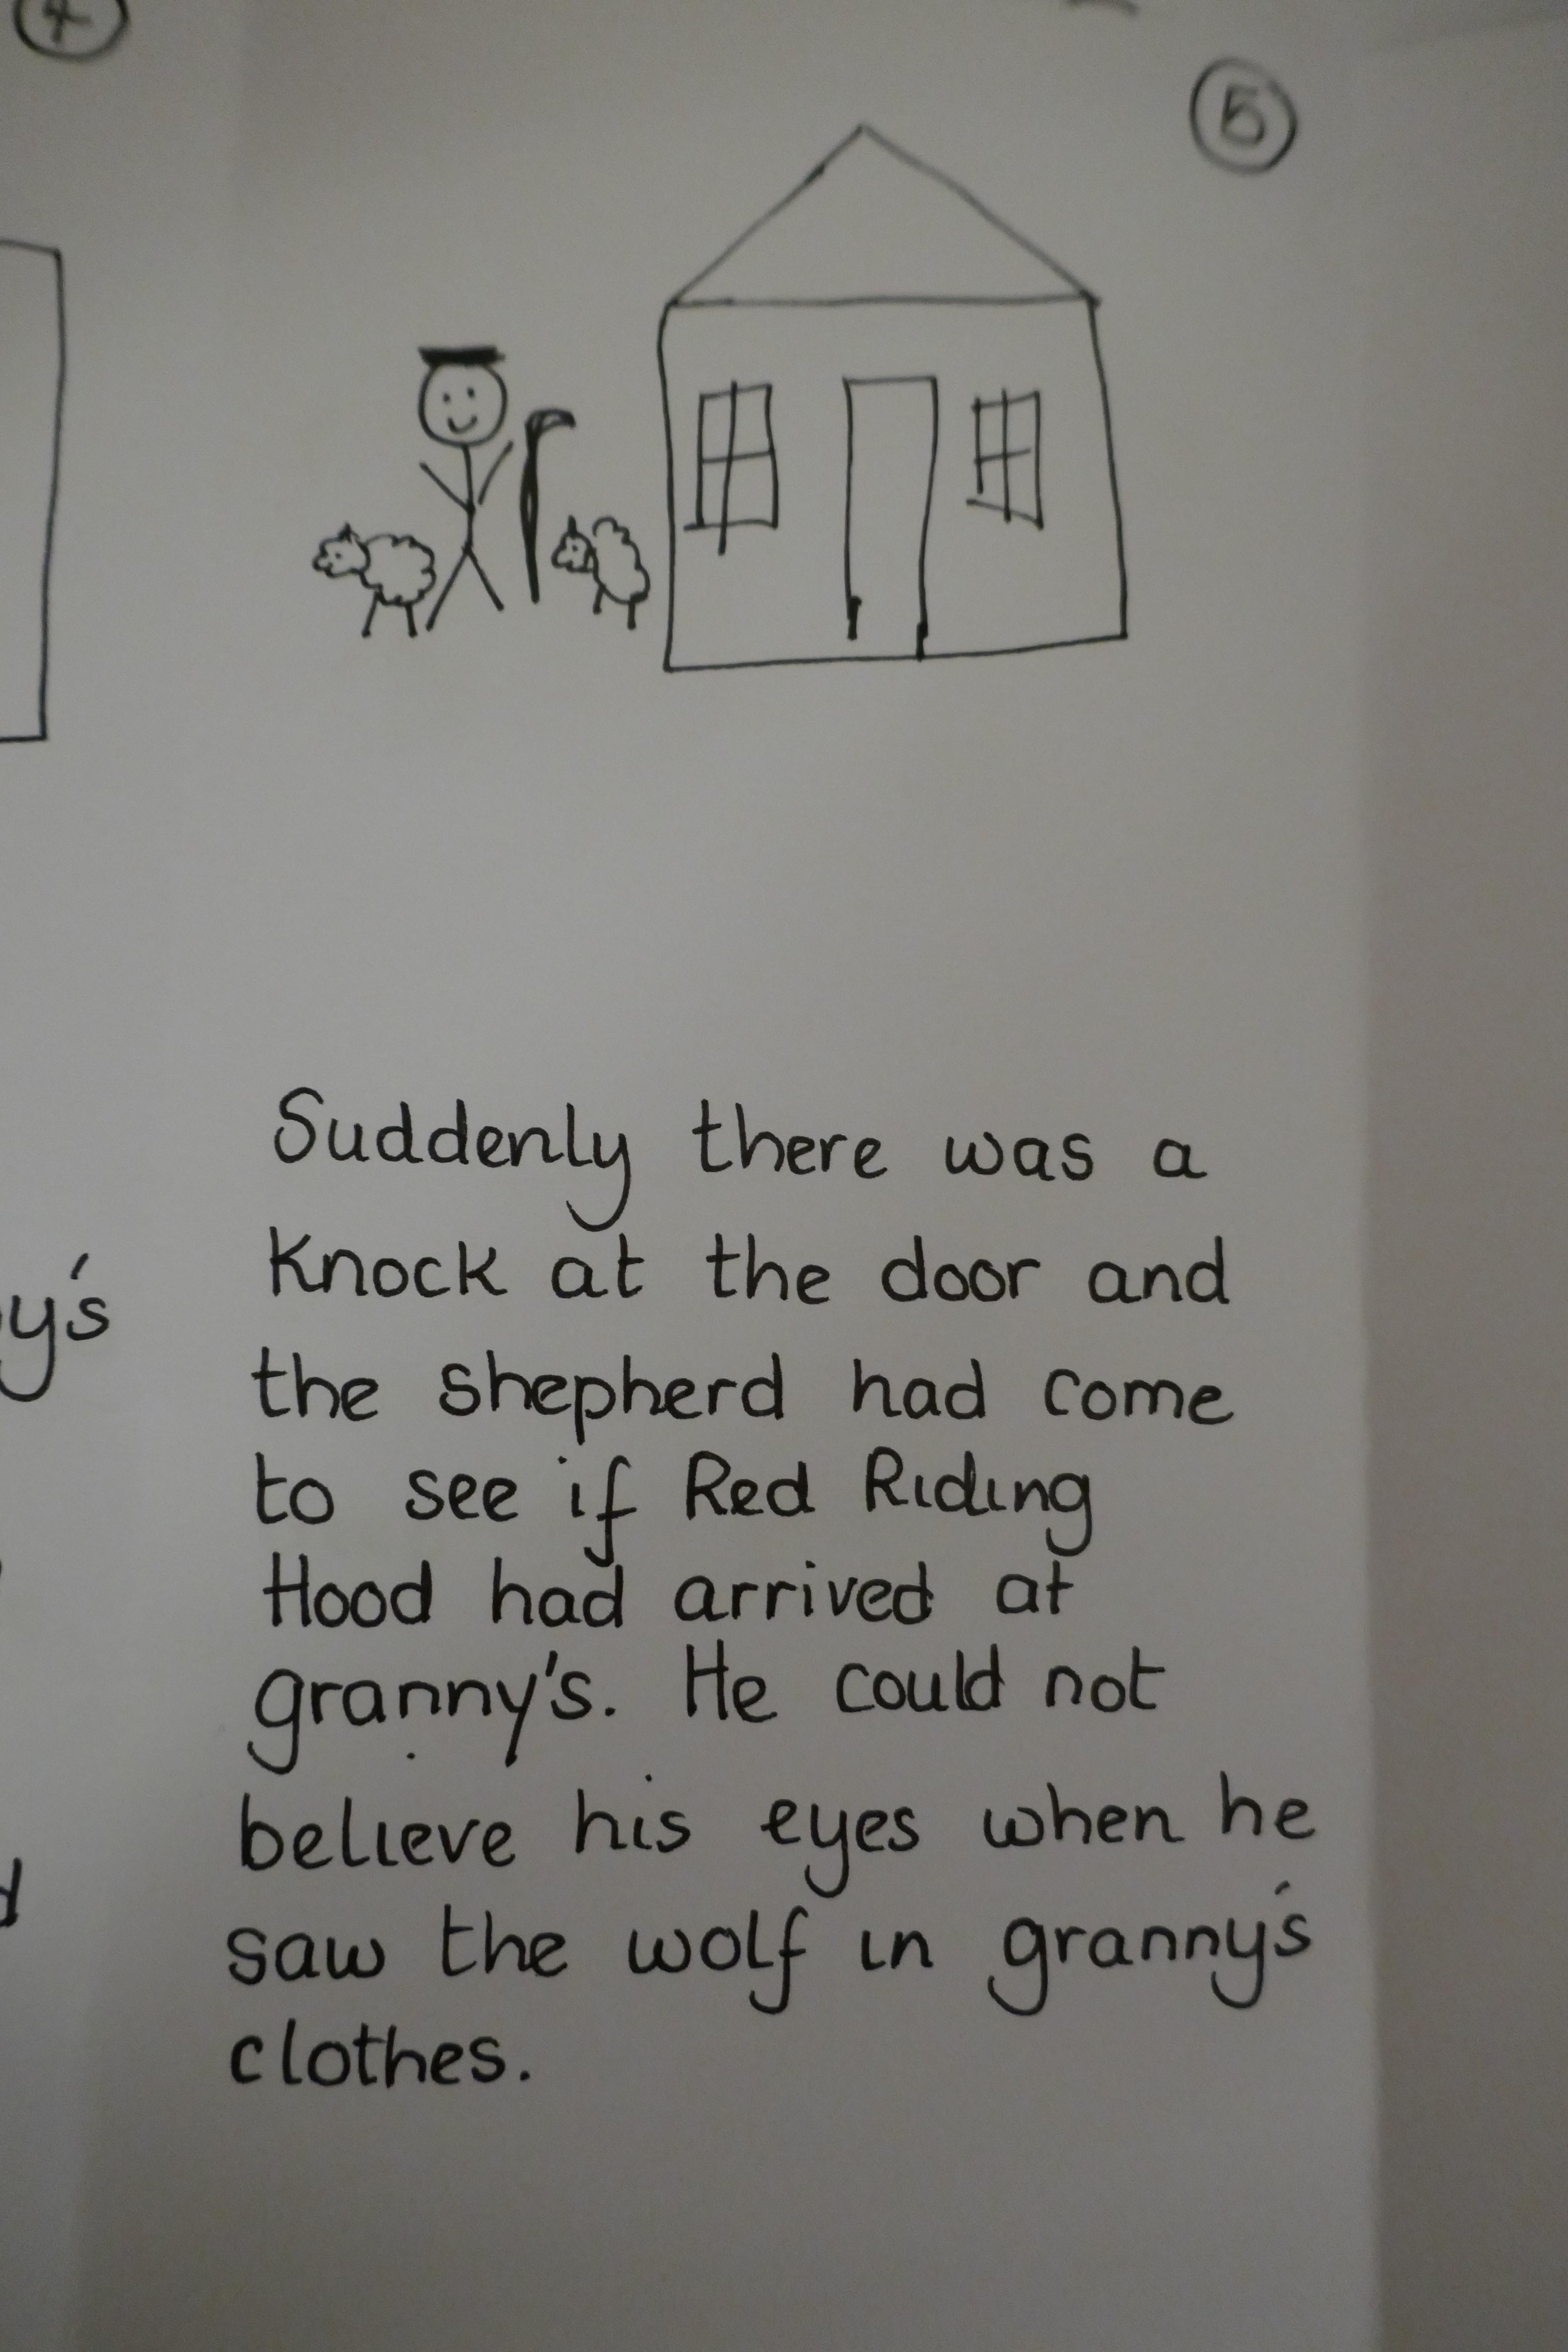 4
5
Suddenly there was a
Knock at the door and
the shepherd had come
to see if Red Riding
Hood had arrived at
granny's. He could not
believe his eyes when he
saw the wolf in granny's
clothes.
y's
d